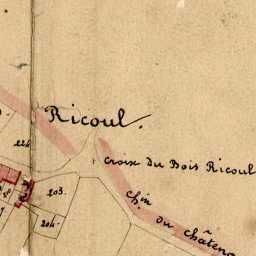 Ricoul.
224
Croix du Bois Ricoul
203.
204.
Ch.in
du châten